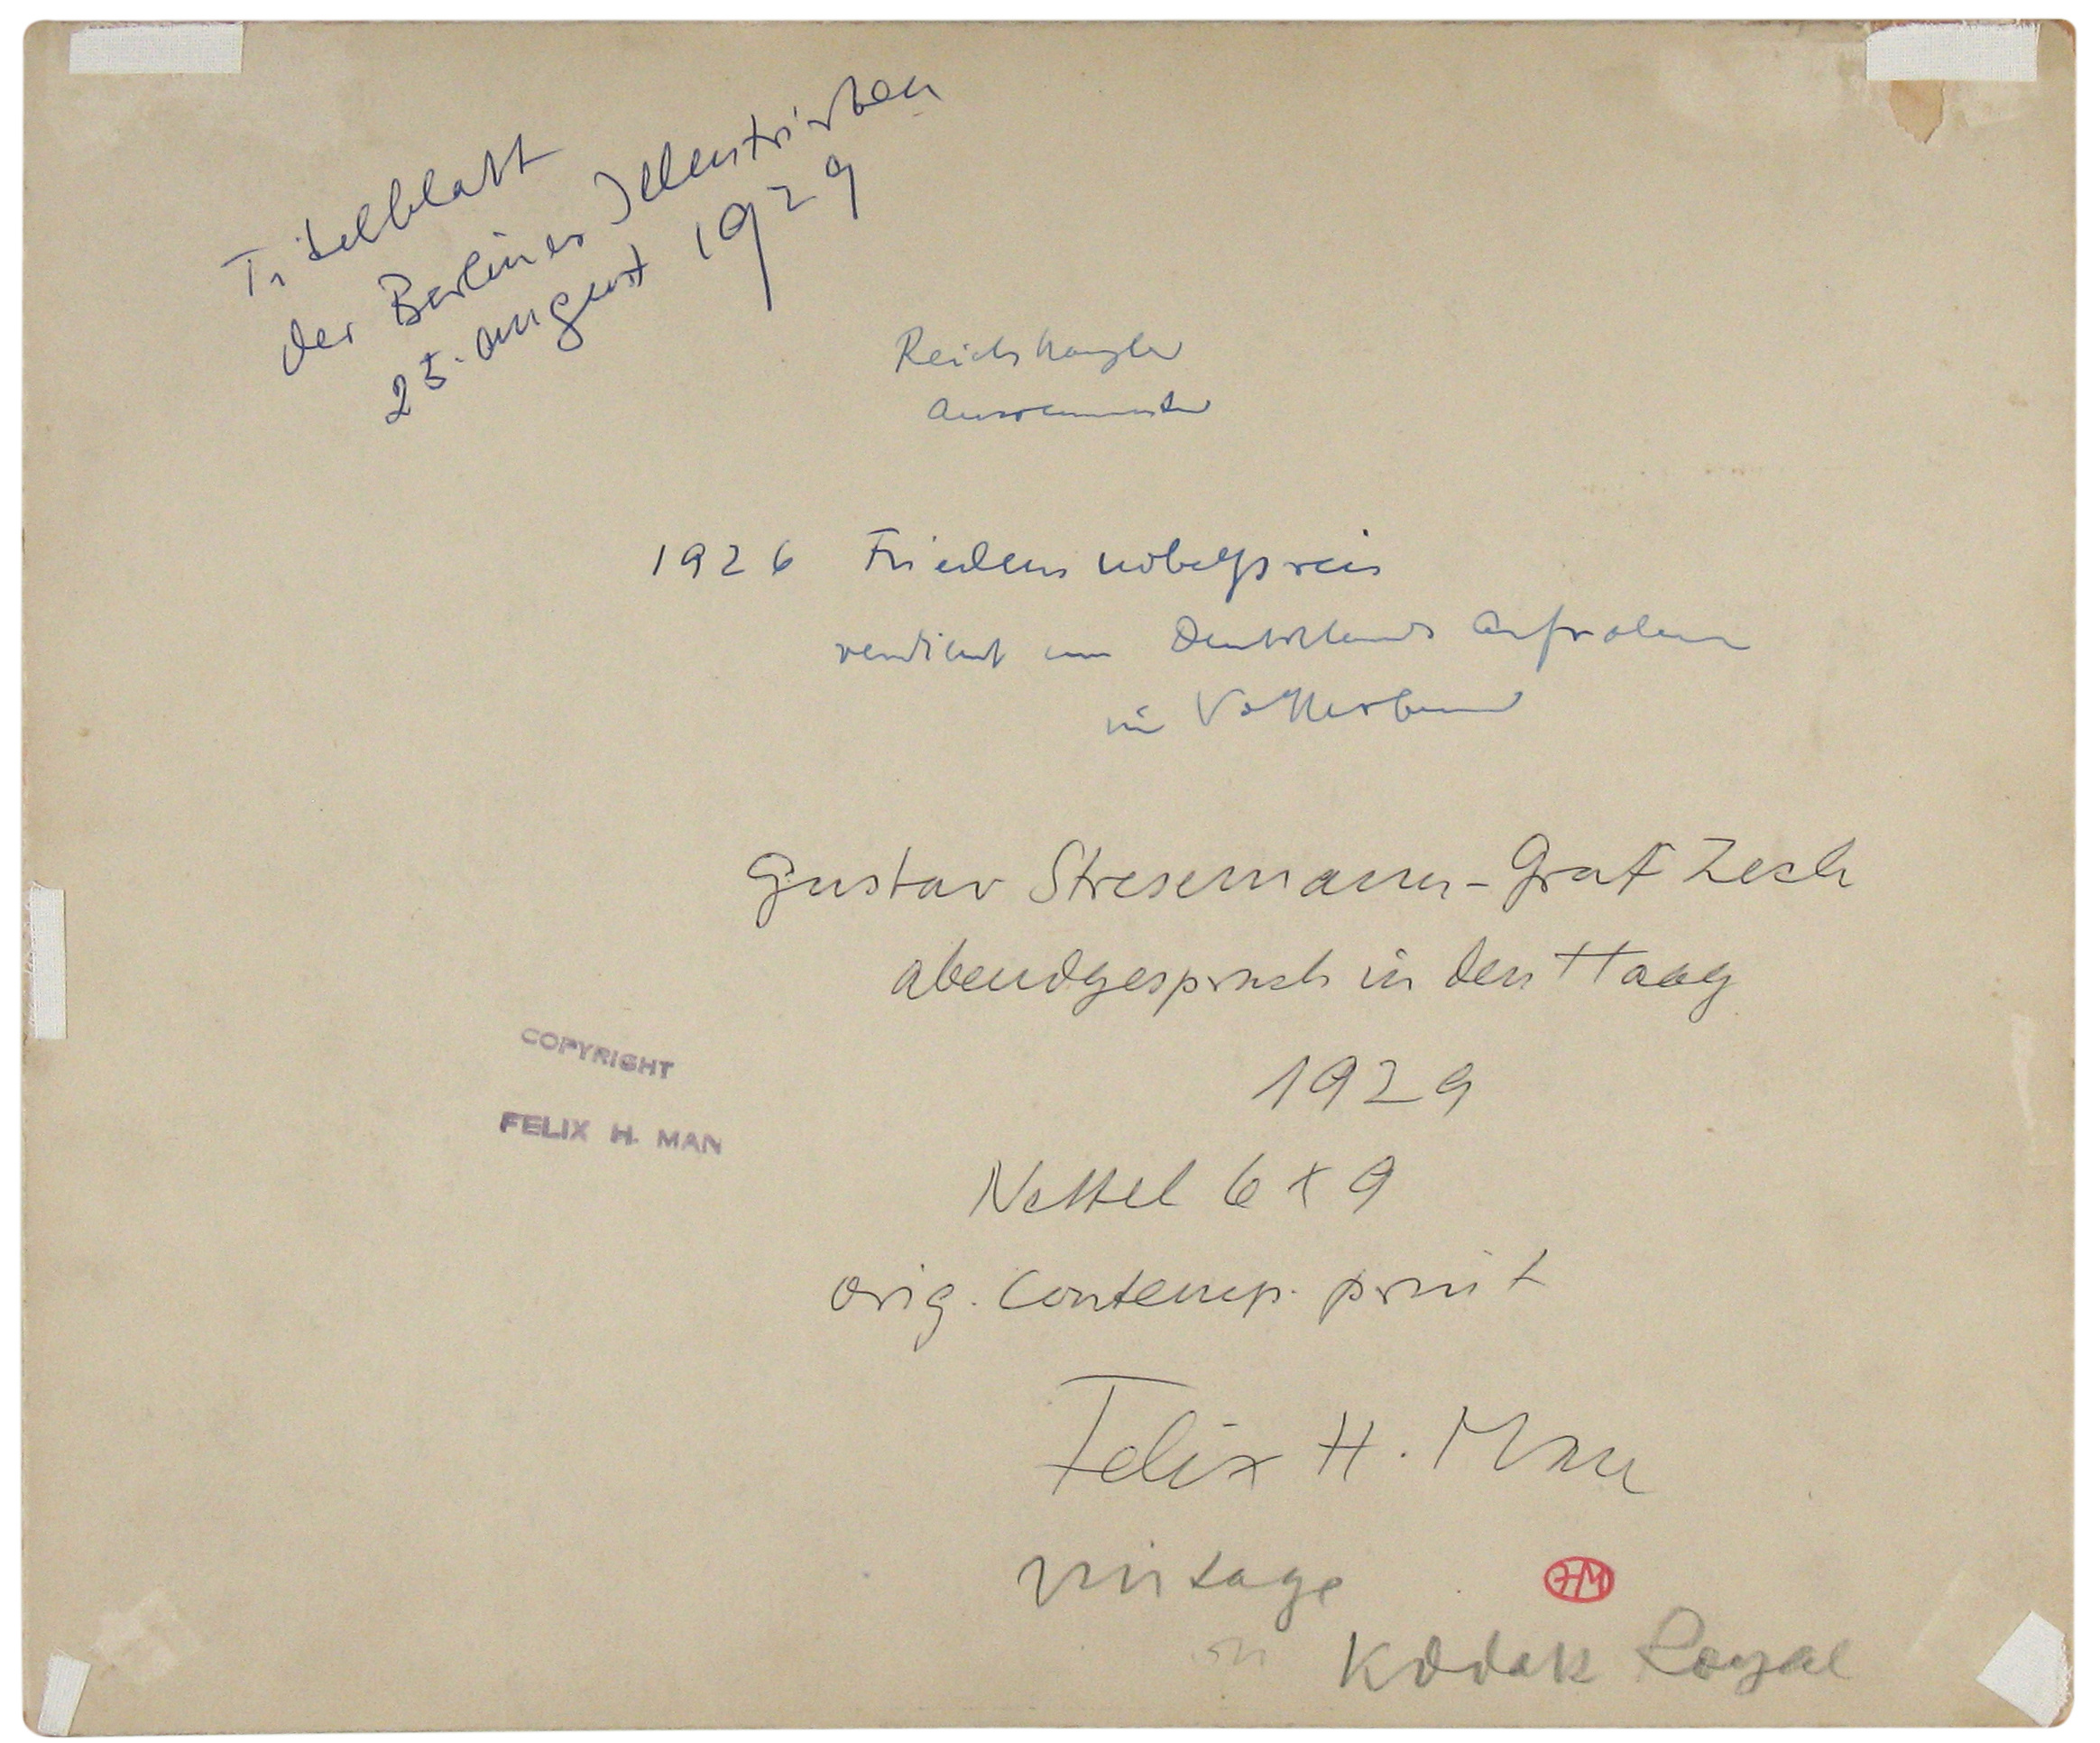 Titelblatt
der Berliner Illustrirten
25. august 1929
Reichskanzler
Aussenminister
1926 Friedensnobelpreis
verdient um Deutschlands Aufnahme
in Völkerbund
Gustav Stresemann - Graf Zech
abendgespräch in Den Haag
1929
COPYRIGHT
FELIX H. MAN
Nettel 6 x 9
orig. Contemp. print
Felix H. Man
vintage
HM
on Kodak Royal